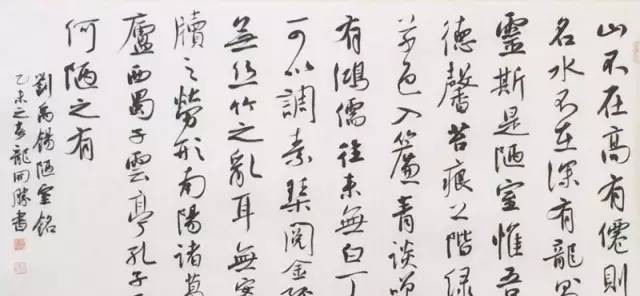 山不在高有僊則
名水不在深有龍則
靈斯是陋室惟吾
德馨苔痕上階緑
草色入簾青談笑
有鴻儒往來無白丁
可以調素琴閱金經
無絲竹之亂耳無案
牘之勞形南陽諸葛
廬西蜀子雲亭孔子
何陋之有
劉禹錫陋室銘
乙未之春龍開勝書